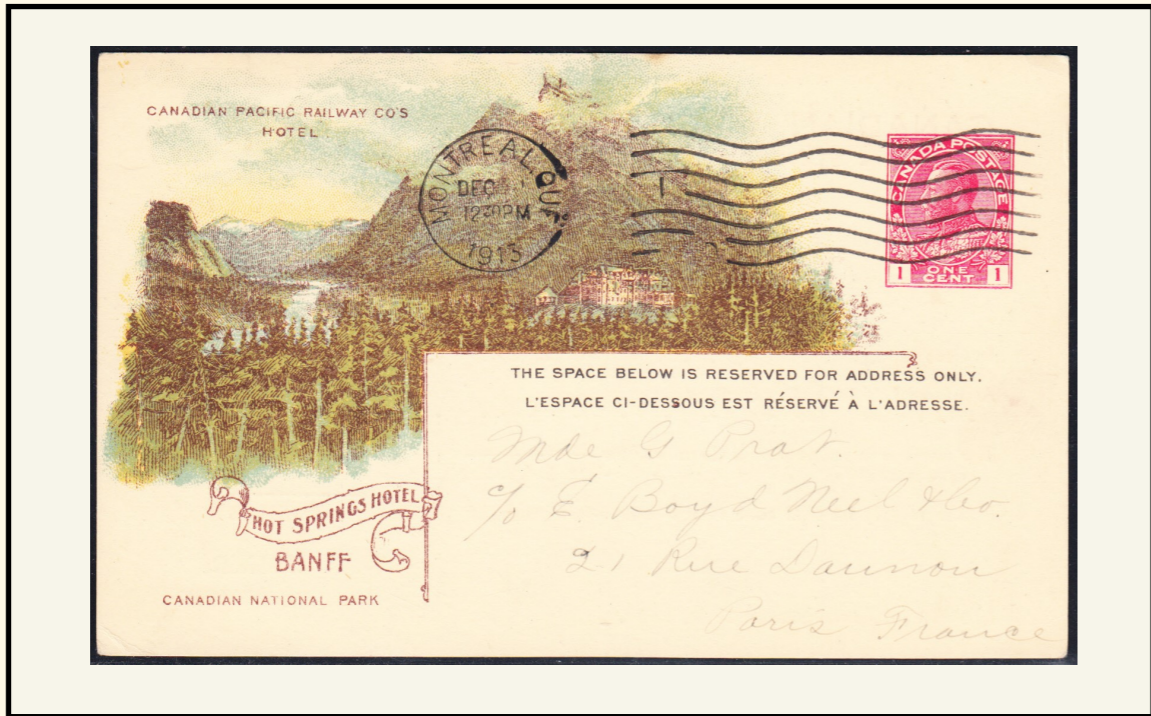 CANADIAN PACIFIC RAILWAY CO'S
HOTEL
MONTREAL, QUE.
DEC
12 30 PM
1913
1
CANADA POSTAGE
1 ONE CENT 1
THE SPACE BELOW IS RESERVED FOR ADDRESS ONLY.
L'ESPACE CI-DESSOUS EST RÉSERVÉ À L'ADRESSE.
Mde G Prat.
c/o E. Boyd Neel & Co.
21 Rue Daunou
Paris France
HOT SPRINGS HOTEL
BANFF
CANADIAN NATIONAL PARK